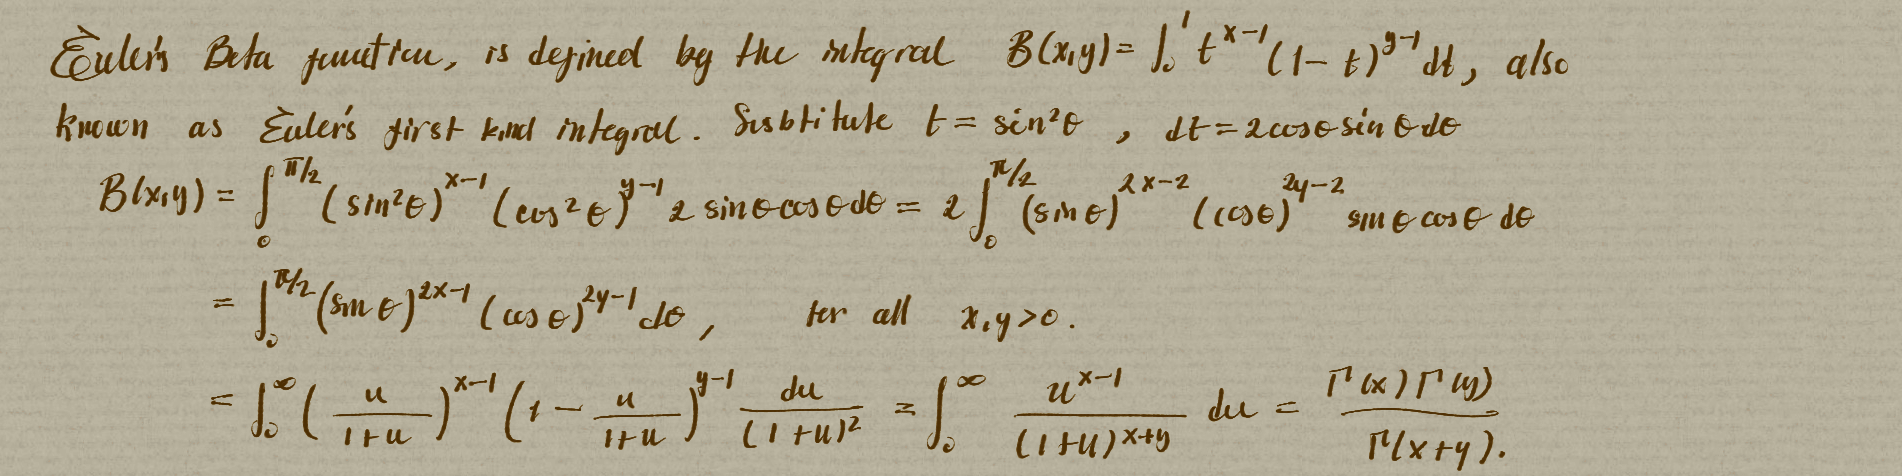 Euler's Beta function, is defined by the integral B(x,y) = ∫₀¹ t^{x-1} (1-t)^{y-1} dt, also
known as Euler's first kind integral. Susbtitute t = sin²θ , dt = 2cosθ sinθ dθ
B(x,y) = ∫₀^{π/2} (sin²θ)^{x-1} (cos²θ)^{y-1} 2 sinθ cosθ dθ = 2 ∫₀^{π/2} (sinθ)^{2x-2} (cosθ)^{2y-2} sinθ cosθ dθ
= ∫₀^{π/2} (sinθ)^{2x-1} (cosθ)^{2y-1} dθ , for all x,y > 0.
= ∫₀^∞ (u/(1+u))^{x-1} (1 - u/(1+u))^{y-1} du/(1+u)² = ∫₀^∞ u^{x-1}/(1+u)^{x+y} du = Γ(x)Γ(y)/Γ(x+y).